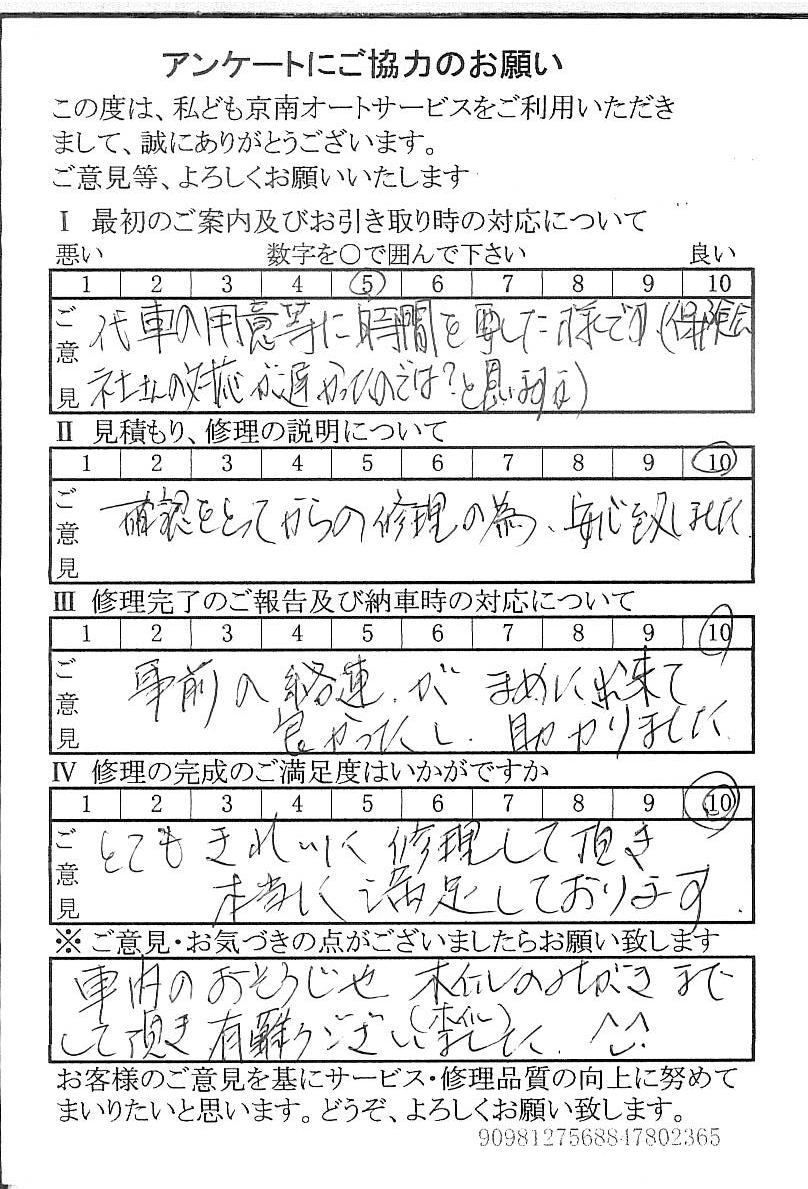 アンケートにご協力のお願い
この度は、私ども京南オートサービスをご利用いただき
まして、誠にありがとうございます。
ご意見等、よろしくお願いいたします
Ⅰ 最初のご案内及びお引き取り時の対応について
悪い 数字を○で囲んで下さい 良い
1 2 3 4 5 6 7 8 9 10
ご意見
代車の用意等に時間を要した様です(保険会
社さんの対応が遅かったのでは?と思いますが)
Ⅱ 見積もり、修理の説明について
1 2 3 4 5 6 7 8 9 10
ご意見
確認をとってからの修理の為、安心致しました
Ⅲ 修理完了のご報告及び納車時の対応について
1 2 3 4 5 6 7 8 9 10
ご意見
事前の絡連がまめに出来て
良かったし、助かりました
Ⅳ 修理の完成のご満足度はいかがですか
1 2 3 4 5 6 7 8 9 10
ご意見
とてもきれいに修理して頂き
本当に満足しております.
※ ご意見・お気づきの点がございましたらお願い致します
車内のおそうじや ホイルのみがきまで
(ホイル)
して頂き有難うございました. ^^
お客様のご意見を基にサービス・修理品質の向上に努めて
まいりたいと思います。どうぞ、よろしくお願い致します。
9098127568847802365